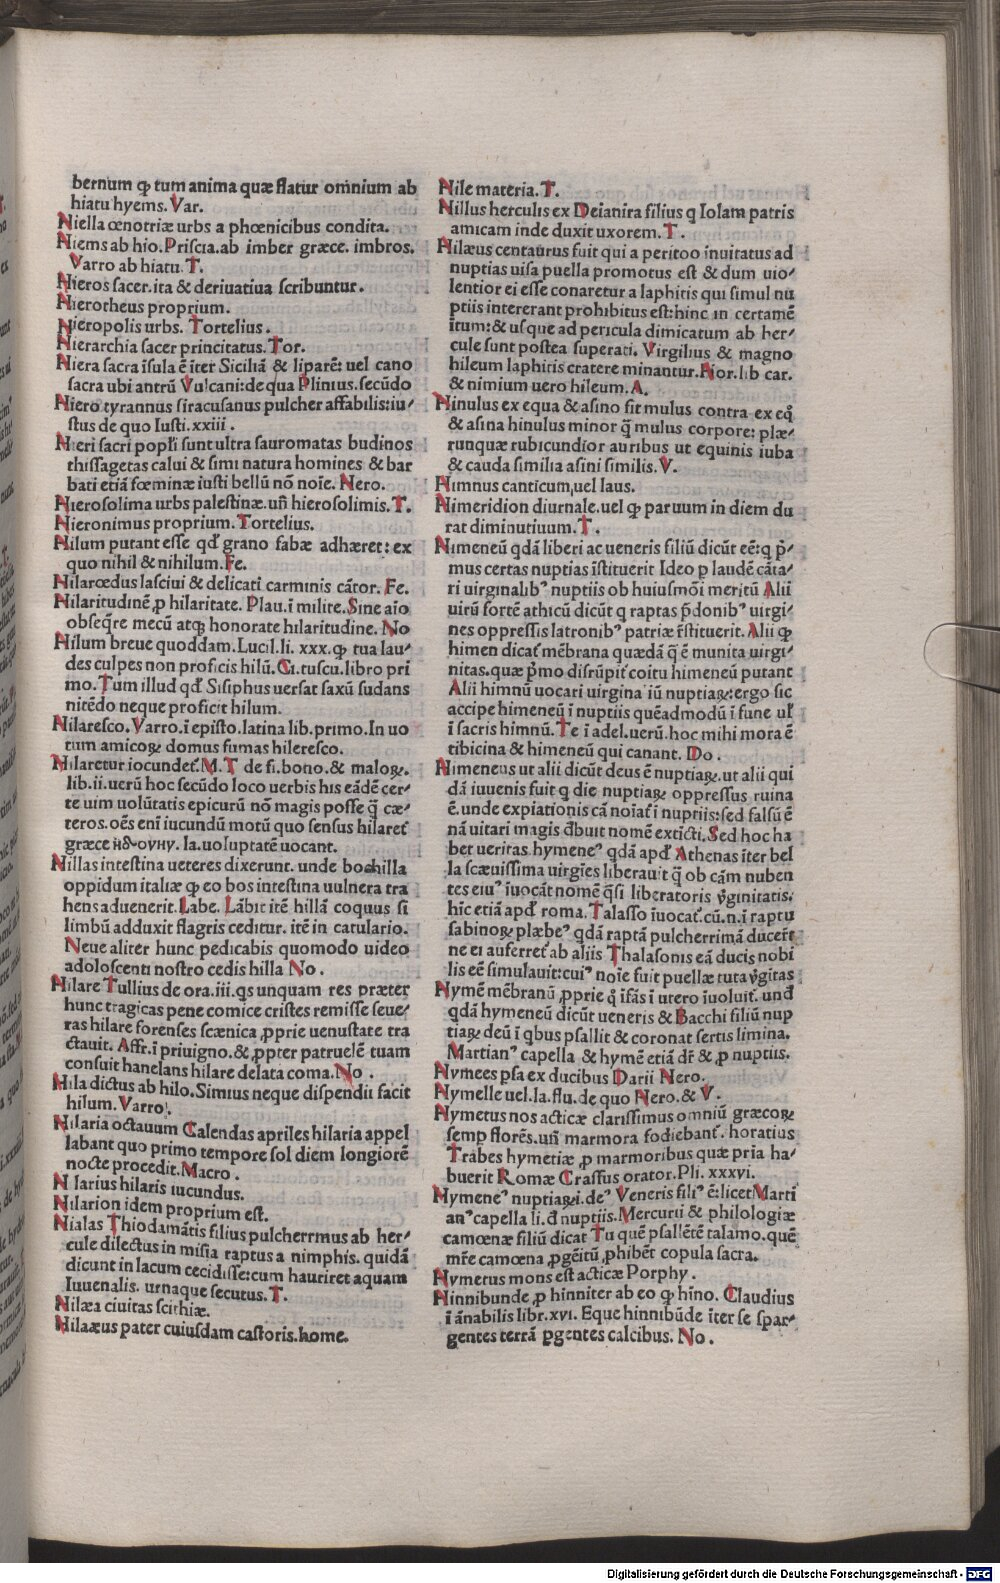 bernum ꝙ tum anima quæ flatur omnium ab
hiatu hyems. Var.
Niella œnotriæ urbs a phœnicibus condita.
Niems ab hio. Priscia. ab imber græce. imbros.
Varro ab hiatu. T.
Nieros sacer. ita & deriuatiua scribuntur.
Nierotheus proprium.
Nieropolis urbs. Tortelius.
Nierarchia sacer princitatus. Tor.
Niera sacra ĩsula ẽ iter Siciliã & liparẽ: uel cano
sacra ubi antrũ Vulcani: de qua Plinius. secũdo
Niero tyrannus siracusanus pulcher affabilis: iu-
stus de quo Iusti. xxiii.
Nieri sacri popl̃i sunt ultra sauromatas budinos
thissagetas calui & simi natura homines & bar
bati etiã fœminæ iusti bellũ nõ noĩe. Nero.
Nierosolima urbs palestinæ. uñ hierosolimis. T.
Nieronimus proprium. Tortelius.
Nilum putant esse qđ grano fabæ adhæret: ex
quo nihil & nihilum. Fe.
Nilarœdus lasciui & delicati carminis cãtor. Fe.
Nilaritudinẽ ꝓ hilaritate. Plau. ĩ milite. Sine aĩo
obseq̃re mecũ atqꝫ honorate hilaritudine. No
Nilum breue quoddam. Lucil. li. xxx. ꝙ tua lau-
des culpes non proficis hilũ. Ci. tuscu. libro pri
mo. Tum illud qđ Sisiphus uersat saxũ sudans
nitẽdo neque proficit hilum.
Nilaresco. Varro. ĩ episto. latina lib. primo. In uo
tum amicoꝝ domus fumas hileresco.
Nilaretur iocundet̃. M. T de fi. bono. & maloꝝ.
lib. ii. uerũ hoc secũdo loco uerbis his eãdẽ cer-
te uim uolũtatis epicurũ nõ magis posse q̃ cæ-
teros. oẽs enĩ iucundũ motũ quo sensus hilaret̃
græce ηδουην. Ia. uoluptatẽ uocant.
Nillas intestina ueteres dixerunt. unde bochilla
oppidum italiæ ꝙ eo bos intestina uulnera tra
hens aduenerit. Labe. Lãbit itẽ hillã coquus si
limbũ adduxit flagris ceditur. itẽ in catulario.
Neue aliter hunc pedicabis quomodo uideo
adoloscenti nostro cedis hilla No.
Nilare Tullius de ora. iii. qs unquam res præter
hunc tragicas pene comice cristes remisse seue-
ras hilare forenses scænica ꝓprie uenustate tra
ctauit. Affr. ĩ priuigno. & ꝓpter patruelẽ tuam
consuit hanelans hilare delata coma. No.
Nila dictus ab hilo. Simius neque dispendii facit
hilum. Varro.
Nilaria octauum Calendas apriles hilaria appel
labant quo primo tempore sol diem longiorẽ
nocte procedit. Macro.
Nilarius hilaris iucundus.
Nilarion idem proprium est.
Nialas Thiodamãtis filius pulcherrmus ab her-
cule dilectus in misia raptus a nimphis. quidã
dicunt in lacum cecidisse: cum hauriret aquam
Iuuenalis. urnaque secutus. T.
Nilæa ciuitas scithiæ.
Nilaæus pater cuiusdam castoris. home.
Nile materia. T.
Nillus herculis ex Deianira filius q Iolam patris
amicam inde duxit uxorem. T.
Nilæus centaurus fuit qui a peritoo inuitatus ad
nuptias uisa puella promotus est & dum uio-
lentior ei esse conaretur a laphitis qui simul nu
ptiis intererant prohibitus est: hinc in certamẽ
itum: & usque ad pericula dimicatum ab her-
cule sunt postea superati. Virgilius & magno
hileum laphitis cratere minantur. Nor. lib car.
& nimium uero hileum. A.
Ninulus ex equa & asino fit mulus contra ex eq̃
& asina hinulus minor q̃ mulus corpore: plæ-
runquæ rubicundior auribus ut equinis iuba
& cauda similia asini similis. V.
Nimnus canticum, uel laus.
Nimeridion diurnale. uel ꝙ paruum in diem du
rat diminutiuum. T.
Nimeneũ qdã liberi ac ueneris filiũ dicũt eẽ: q p̃-
mus certas nuptias ĩstituerit Ideo p laudẽ cãta-
ri uirginalibꝰ nuptiis ob huiusmõi meritũ Alii
uirũ fortẽ athicũ dicũt q raptas p̃donibꝰ uirgi-
nes oppressis latronibꝰ patriæ r̃stituerit. Alii ꝙ
himen dicat̃ mẽbrana quædã q̃ ẽ munita uirgi-
nitas. quæ p̃mo disrũpit̃ coitu himeneũ putant
Alii himnũ uocari uirgina iũ nuptiaꝝ: ergo sic
accipe himeneũ ĩ nuptiis quẽadmodũ ĩ fune ul̃
ĩ sacris himnũ. Te ĩ adel. uerũ. hoc mihi mora ẽ
tibicina & himeneũ qui canant. Do.
Nimeneus ut alii dicũt deus ẽ nuptiaꝝ. ut alii qui
dã iuuenis fuit q die nuptiaꝝ oppressus ruina
ẽ. unde expiationis cã noĩat̃ ĩ nuptiis: sed falsũ ẽ
nã uitari magis d̃buit nomẽ extĩcti. Sed hoc ha
bet ueritas hymeneꝰ qdã apđ Athenas ĩter bel
la scæuissima uirgĩes liberauit q̃ ob cãm nuben
tes eiuꝰ ĩuocãt nomẽ q̃si liberatoris ỹginitatis.
hĩc etiã apđ roma. Talasso ĩuocat̃. cũ. n. ĩ raptu
sabinoꝝ plæbeꝰ qdã raptã pulcherrimã ducer̃t
ne ei auferret̃ ab aliis Thalasonis eã ducis nobi
lis eẽ simulauit: cuiꝰ noĩe fuit puellæ tuta ỹgitas
Nymẽ mẽbranũ ꝓprie q̃ ĩfãs ĩ utero ĩuoluit̃. unđ
qdã hymeneũ dicũt ueneris & Bacchi filiũ nup
tiaꝝ deũ ĩ qbus psallit & coronat sertis limina.
Martianꝰ capella & hymẽ etiã dr̃ & ꝓ nuptiis.
Nymees psa ex ducibus Darii Nero.
Nymelle uel. la. flu. de quo Nero. & V.
Nymetus nos acticæ clarissimus omniũ græcoꝝ
semp florẽs. uñ marmora fodiebant̃. horatius
Trabes hymetiæ ꝓ marmoribus quæ pria ha-
buerit Romæ Crassus orator. Pli. xxxvi.
Nymeneꝰ nuptiaꝝ. i. deꝰ Veneris filiꝰ ẽ: licet Marti
anꝰ capella li. đ nuptiis. Mercurii & philologiæ
camœnæ filiũ dicat Tu quẽ psallẽtẽ talamo. quẽ
mr̃e camœna ꝓgẽitũ ꝓhibẽt copula sacra.
Nymetus mons est acticæ Porphy.
Ninnibunde ꝓ hinniter ab eo ꝙ hĩno. Claudius
ĩ ãnabilis libr. xvi. Eque hinnibũde ĩter se spar-
gentes terrã pgentes calcibus. No.
Digitalisierung gefördert durch die Deutsche Forschungsgemeinschaft - DFG